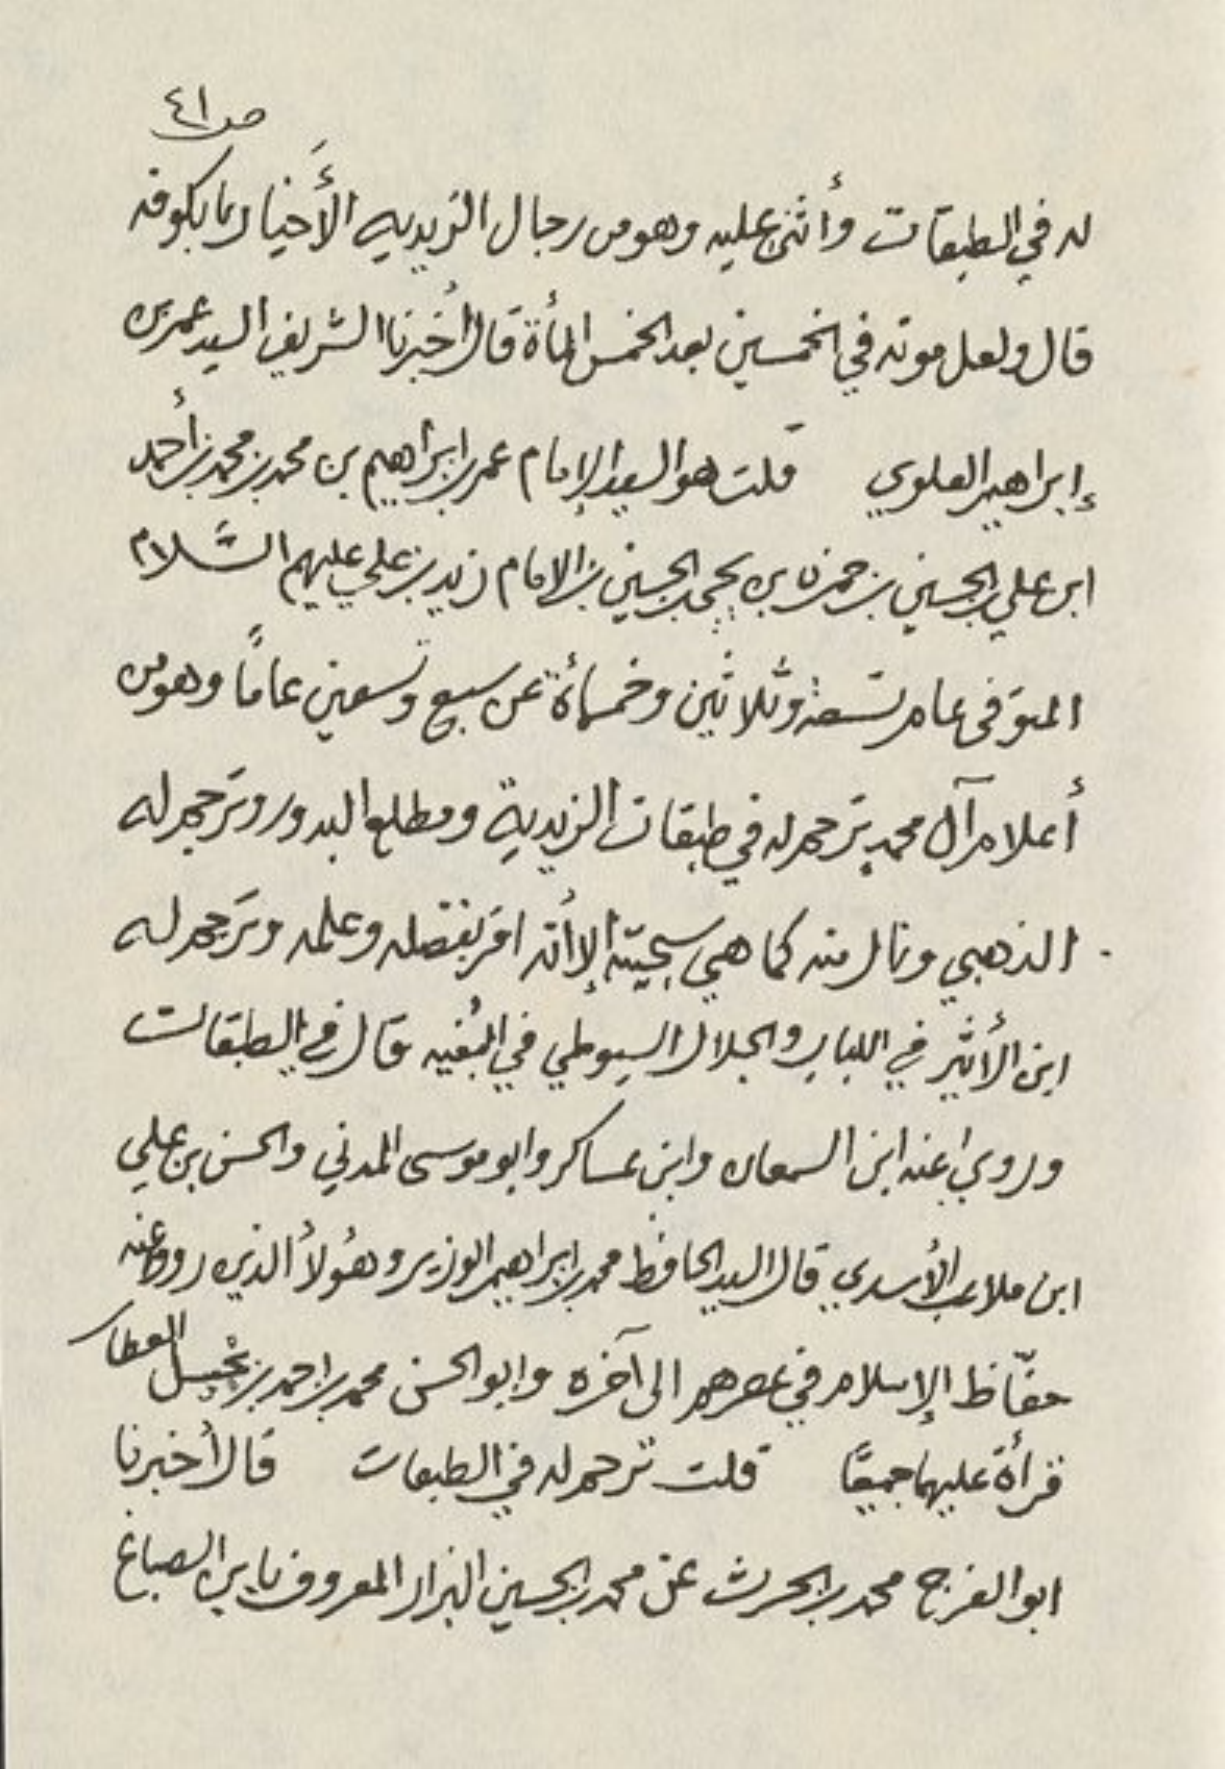 ص ٤١
له في الطبقات وأثنى عليه وهو من رجال الزيديه الأخيار بالكوفه
قال ولعل موته في الخمسين بعد الخمس المأة قال أخبرنا الشريف السيد عمر بن
إبراهيم العلوي قلت هو السيد الإمام عمر بن إبراهيم بن محمد بن محمد بن أحمد
ابن علي بن الحسين بن حمزه بن يحيى بن الحسين بن الامام زيد بن علي عليهم السَّلام
المتوفى عام تسعة وثلاثين وخمسمائة عن سبع وتسعين عامًا وهو من
أعلام آل محمد ترجم له في طبقات الزيدية ومطلع البدور وترجم له
الذهبي ونال منه كما هي سجيّته إلا أنّه اقر بفضله وعلمه وترجم له
ابن الأثير في اللباب والجلال السيوطي في البُغيه قال في الطبقات
وروى عنه ابن السمعان وابن عساكر وابو موسى المدني والحسن بن علي
ابن ملاعب الأسدي قال السيد الحافظ محمد بن إبراهيم الوزير وهؤلأ الذين رووا عنه
حفّاظ الإسلام في عصرهم الى آخره وابو الحسن محمد بن احمد بن العطار
قرأة عليهما جميعًا قلت ترجم له في الطبقات قال أخبرنا
ابو الفرج محمد بن الحرث عن محمد بن الحسين البزار المعروف بابن الصباغ